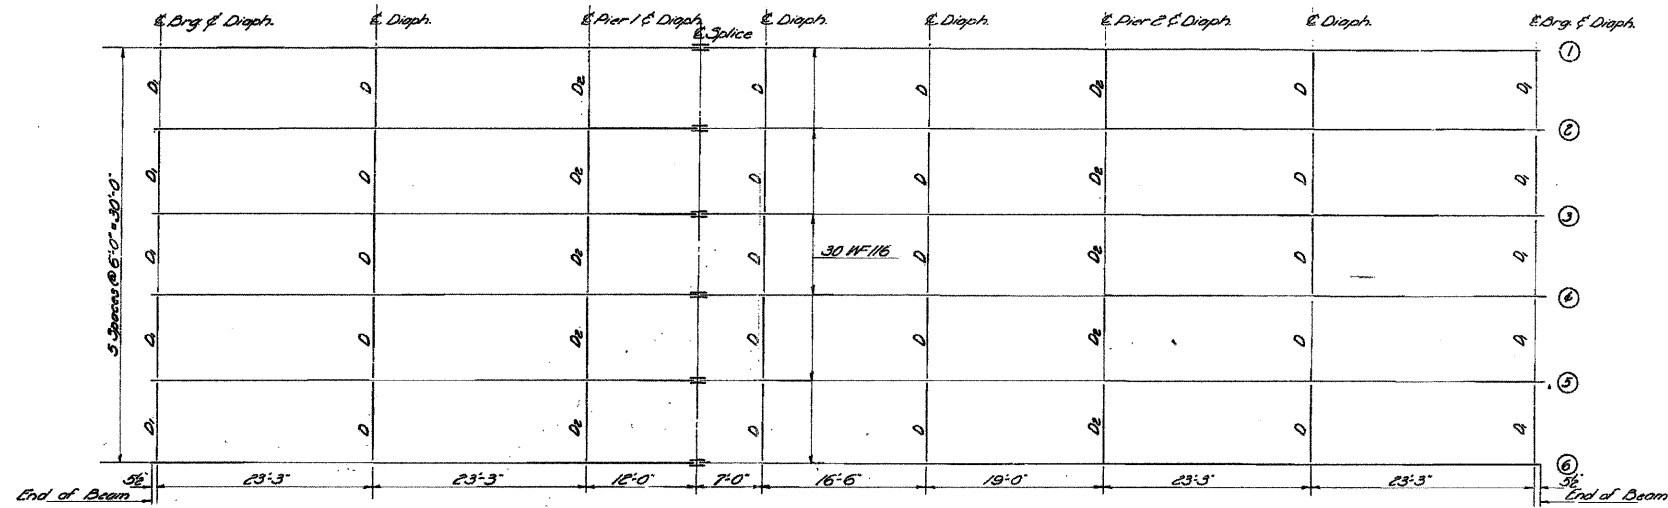 ℄ Brg ₵ Diaph.
℄ Diaph.
℄ Pier 1 ₵ Diaph.
℄ Splice
℄ Diaph.
℄ Diaph.
℄ Pier 2 ₵ Diaph.
℄ Diaph.
℄ Brg. ₵ Diaph.
1
D1 D D2 D D D2 D D1
2
D1 D D2 D D D2 D D1
3
5 Spaces @ 6'-0" = 30'-0"
D1 D D2 D 30 WF 116 D D2 D D1
4
D1 D D2 D D D2 D D1
5
D1 D D2 D D D2 D D1
6
5½" 23'-3" 23'-3" 12'-0" 7'-0" 16'-6" 19'-0" 23'-3" 23'-3" 5½"
End of Beam
End of Beam